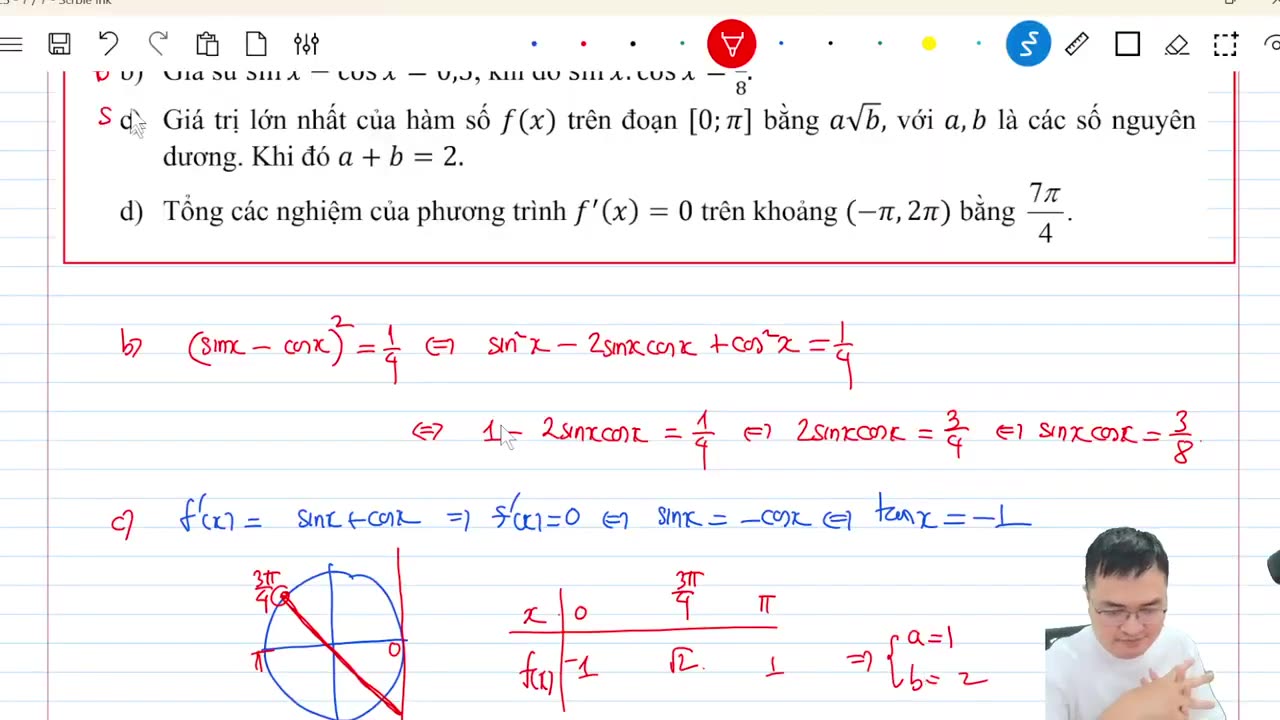 b) Giả sử sin x − cos x = 0,5, khi đó sin x. cos x = 8.
S c) Giá trị lớn nhất của hàm số f(x) trên đoạn [0; π] bằng a√b, với a, b là các số nguyên
dương. Khi đó a + b = 2.
d) Tổng các nghiệm của phương trình f′(x) = 0 trên khoảng (−π, 2π) bằng 7π/4.
b) (sinx − cosx)² = 1/4 ⇔ sin²x − 2sinxcosx + cos²x = 1/4
⇔ 1 − 2sinxcosx = 1/4 ⇔ 2sinxcosx = 3/4 ⇔ sinxcosx = 3/8
c) f'(x) = sinx + cosx ⇒ f'(x) = 0 ⇔ sinx = −cosx ⇔ tanx = −1
3π/4
π 0
x 0 3π/4 π
f(x) −1 √2 1
⇒ { a = 1
b = 2